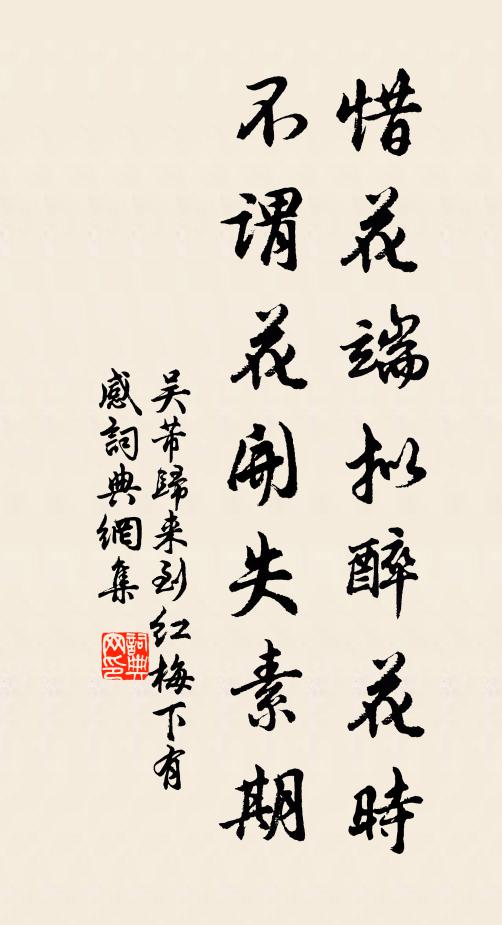 惜花端拟醉花時
不謂花開失素期
吴芾歸来到红梅下有
感詞典網集
詞典
网印